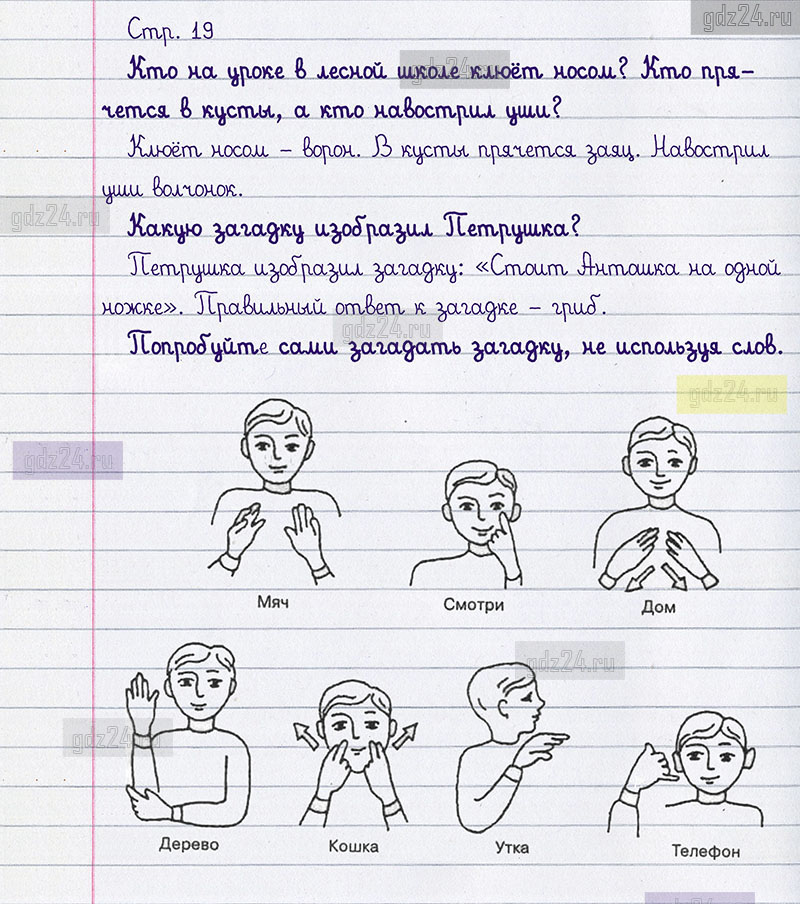 gdz24.ru
Стр. 19
Кто на уроке в лесной школе клюёт носом? Кто пря-
gdz24.ru
чется в кусты, а кто навострил уши?
Клюёт носом – ворон. В кусты прячется заяц. Навострил
уши волчонок.
gdz24.ru
Какую загадку изобразил Петрушка?
Петрушка изобразил загадку: «Стоит Анташка на одной
ножке». Правильный ответ к загадке – гриб.
gdz24.ru
Попробуйте сами загадать загадку, не используя слов.
gdz24.ru
gdz24.ru
Мяч
Смотри
Дом
gdz24.ru
gdz24.ru
Дерево
Кошка
Утка
Телефон